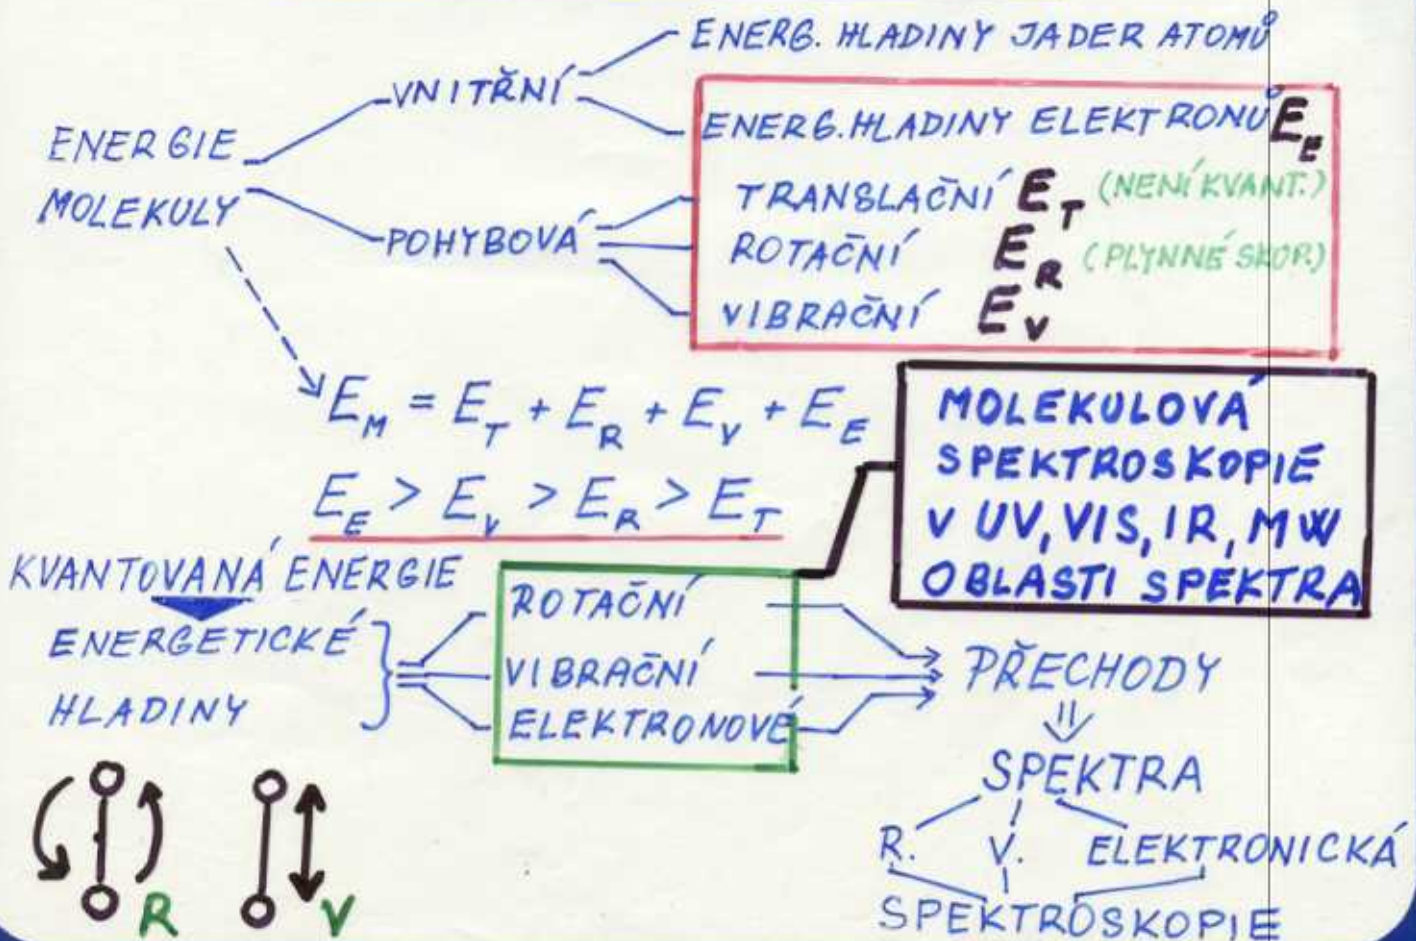 ENERG. HLADINY JADER ATOMŮ
VNITŘNÍ
ENERG. HLADINY ELEKTRONŮ E_E
ENERGIE
MOLEKULY
TRANSLAČNÍ E_T (NENÍ KVANT.)
POHYBOVÁ
ROTAČNÍ E_R (PLYNNÉ SKUP.)
VIBRAČNÍ E_V
E_M = E_T + E_R + E_V + E_E
E_E > E_V > E_R > E_T
MOLEKULOVÁ
SPEKTROSKOPIE
V UV, VIS, IR, MW
OBLASTI SPEKTRA
KVANTOVANÁ ENERGIE
ENERGETICKÉ
HLADINY
ROTAČNÍ
VIBRAČNÍ
ELEKTRONOVÉ
PŘECHODY
SPEKTRA
R. V. ELEKTRONICKÁ
SPEKTROSKOPIE
R V